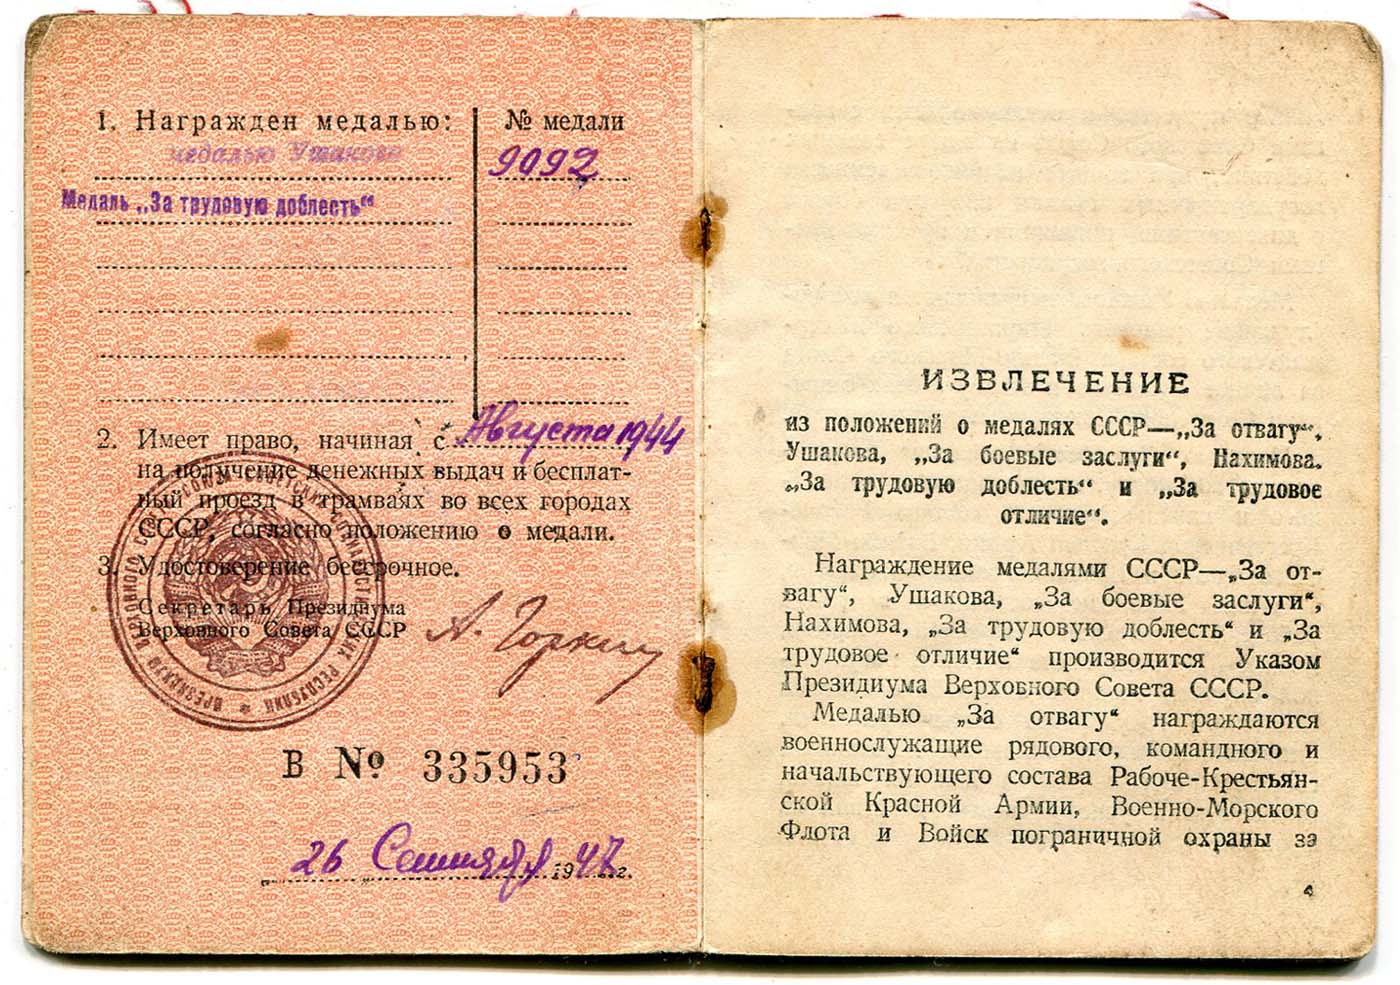 1. Награжден медалью:
№ медали
медалью Ушакова
9092
Медаль „За трудовую доблесть“
2. Имеет право, начиная с Августа 1944
на получение денежных выдач и бесплат-
ный проезд в трамваях во всех городах
СССР, согласно положению о медали.
3. Удостоверение бессрочное.
Секретарь Президиума
Верховного Совета СССР
А. Горкин
В № 335953
26 Сентября 1947 г.
ИЗВЛЕЧЕНИЕ
из положений о медалях СССР—„За отвагу“,
Ушакова, „За боевые заслуги“, Нахимова.
„За трудовую доблесть“ и „За трудовое
отличие“.
Награждение медалями СССР—„За от-
вагу“, Ушакова, „За боевые заслуги“,
Нахимова, „За трудовую доблесть“ и „За
трудовое отличие“ производится Указом
Президиума Верховного Совета СССР.
Медалью „За отвагу“ награждаются
военнослужащие рядового, командного и
начальствующего состава Рабоче-Крестьян-
ской Красной Армии, Военно-Морского
Флота и Войск пограничной охраны за